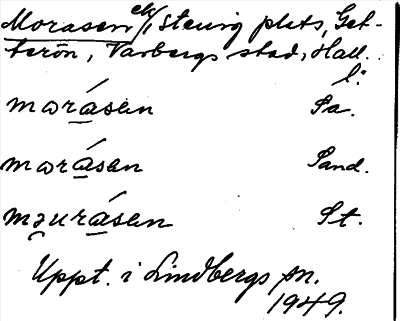 Morasen, stenig plats, Get-
terön, Varbergs stad, Hall.
l:
marásen Pa.
marásen Sand.
məurásen St.
Uppt. i Lindbergs sn.
1949.